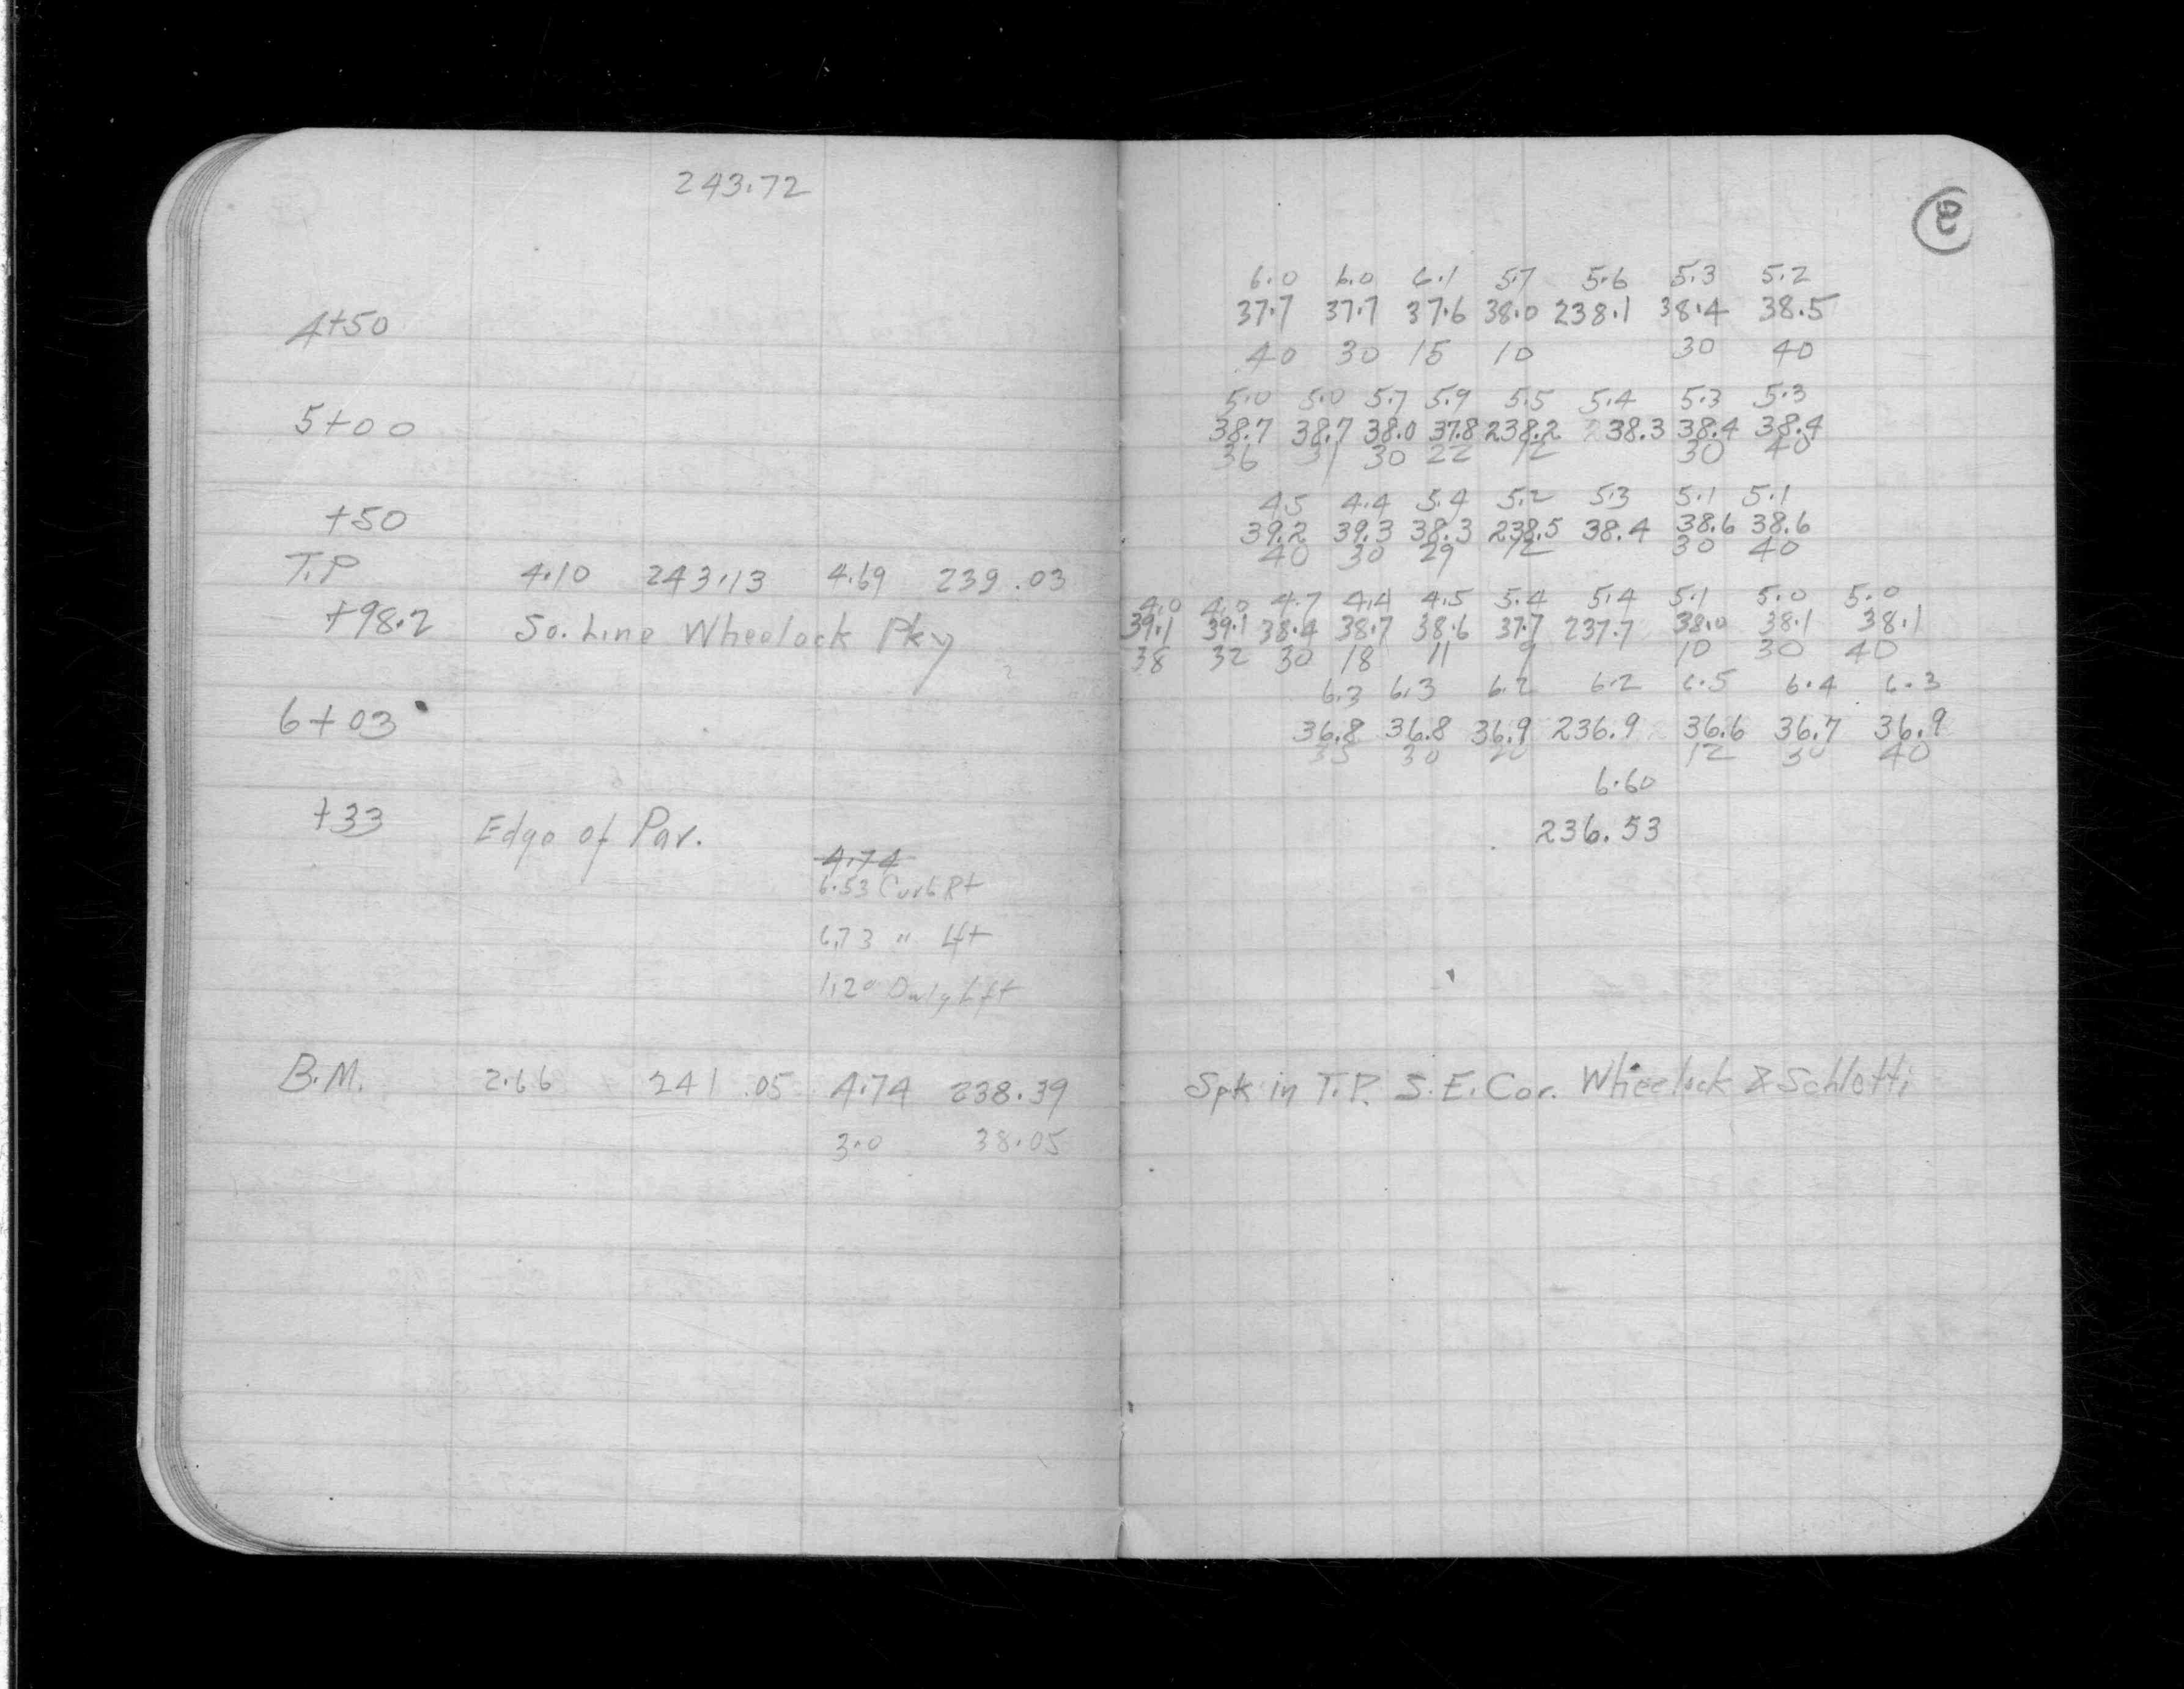 243.72
4+50
5+00
+50
T.P 4.10 243.13 4.69 239.03
+98.2 So. Line Wheelock Pky
6+03
+33 Edge of Pav.
4.74
6.53 Curb Rt
6.73 " Lft
1.20 Lft
B.M. 2.66 241.05 4.74 238.39
3.0 38.05
6.0 6.0 6.1 5.7 5.6 5.3 5.2
37.7 37.7 37.6 38.0 238.1 38.4 38.5
40 30 15 10 30 40
5.0 5.0 5.7 5.9 5.5 5.4 5.3 5.3
38.7 38.7 38.0 37.8 238.2 238.3 38.4 38.4
36 31 30 22 12 30 40
4.5 4.4 5.4 5.2 5.3 5.1 5.1
39.2 39.3 38.3 238.5 38.4 38.6 38.6
40 30 29 12 30 40
4.0 4.0 4.7 4.4 4.5 5.4 5.4 5.1 5.0 5.0
39.1 39.1 38.4 38.7 38.6 37.7 237.7 38.0 38.1 38.1
38 32 30 18 11 9 10 30 40
6.3 6.3 6.2 6.2 6.5 6.4 6.3
36.8 36.8 36.9 236.9 36.6 36.7 36.9
35 30 20 12 30 40
6.60
236.53
Spk in T.P. S.E. Cor. Wheelock & Schletti